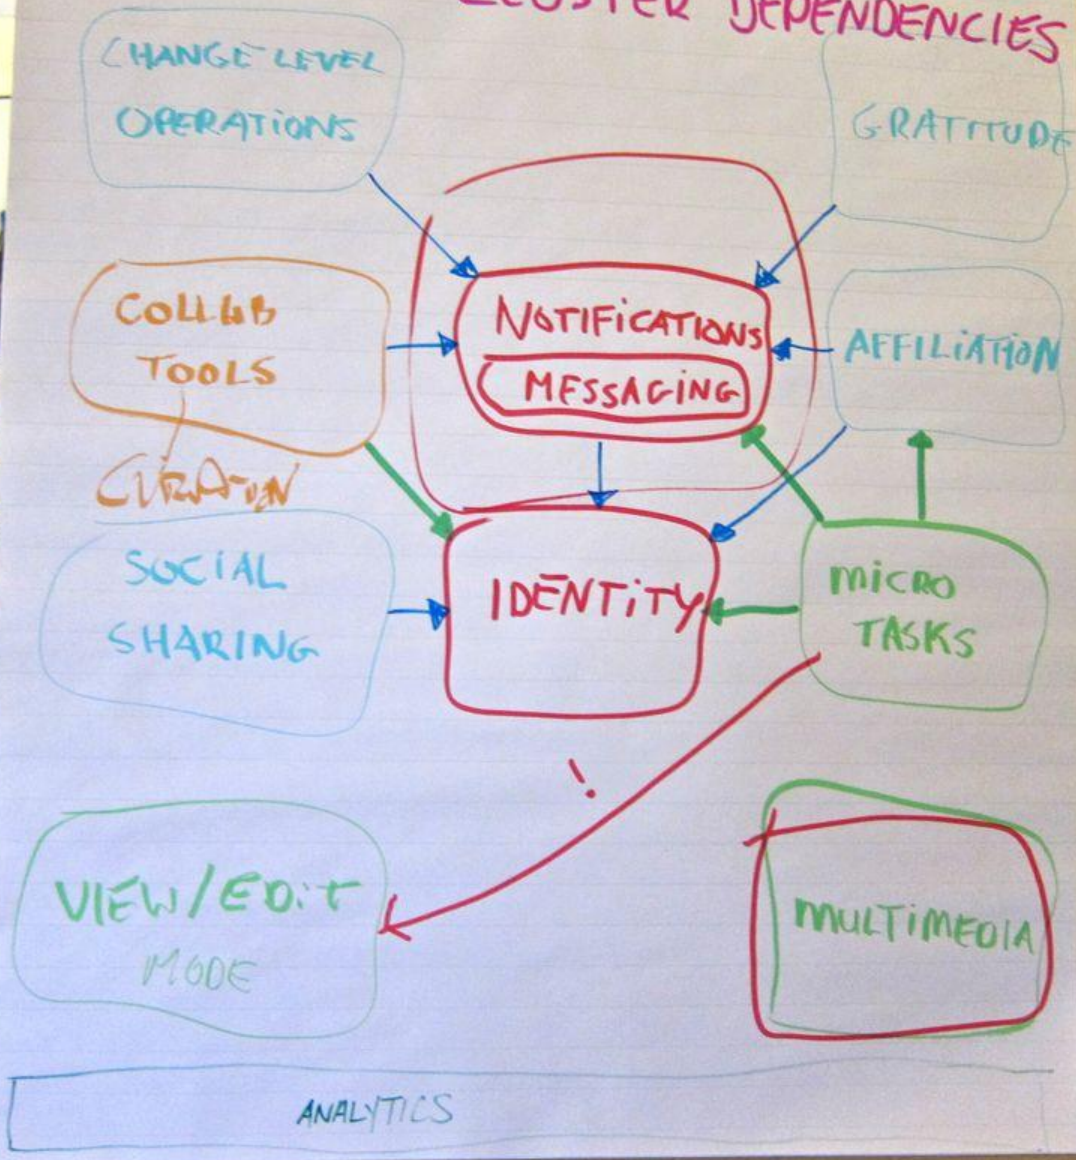 CLUSTER DEPENDENCIES
CHANGE LEVEL
OPERATIONS
GRATITUDE
COLLAB
TOOLS
NOTIFICATIONS
MESSAGING
AFFILIATION
CURATION
SOCIAL
SHARING
IDENTITY
MICRO
TASKS
!
VIEW/EDIT
MODE
MULTIMEDIA
ANALYTICS